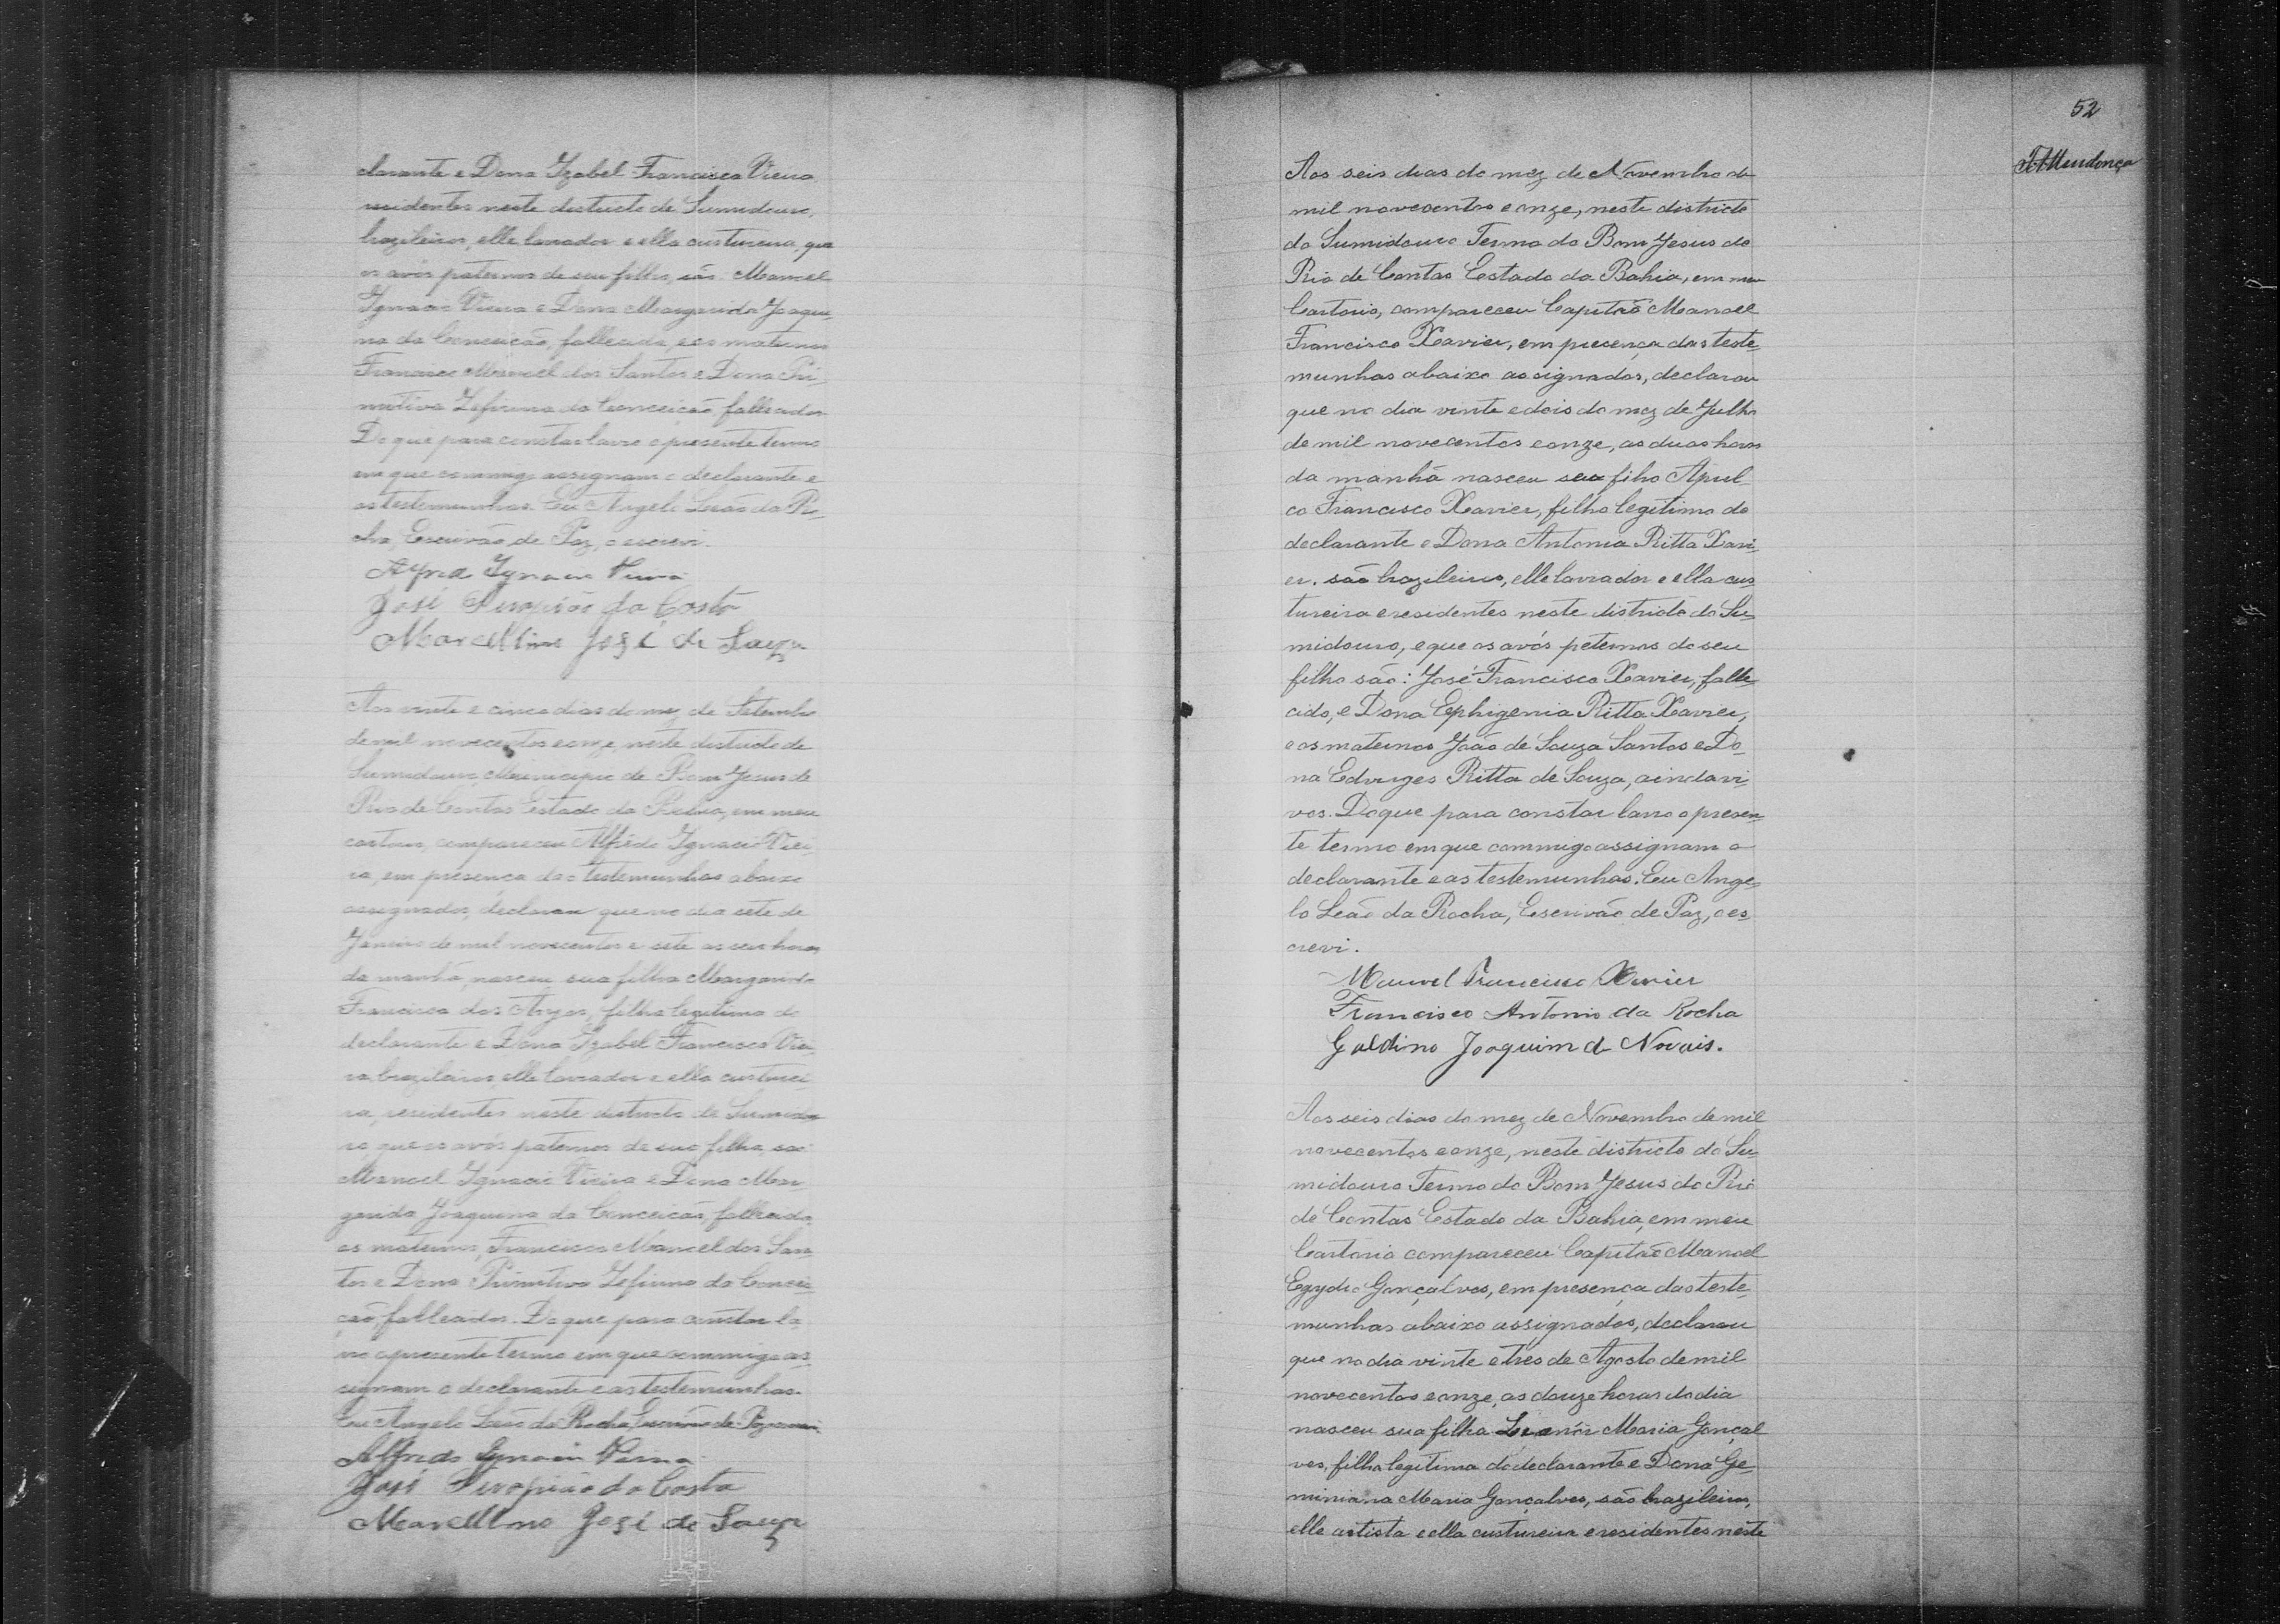 clarante e Dona Izabel Francisca Vieira
residentes neste districto de Sumidouro,
brazileiros, elle lavrador e ella custureira, que
os avós paternos de seu filho, são Manoel
Ignacio Vieira e Dona Margarida Joaqui-
na da Conceicão, fallecida, e os maternos
Francisco Manoel dos Santos e Dona Pri-
mitiva Zefirina da Conceicão, fallecidos
Do que para constar lavro o presente termo
em que commigo assignam o declarante e
as testemunhas. Eu Angelo Leão da Ro-
cha, Escrivão de Paz, o escrevi.
Ignacio Vieira
José da Costa
Marcellino José de Souza
Aos vinte e cinco dias do mez de Setembro
de mil novecentos e onze, neste districto de
Sumidouro, Municipio de Bom Jesus do
Rio de Contas Estado da Bahia, em meu
cartorio, compareceu Alfrêdo Ignacio Viei-
ra, em presença das testemunhas abaixo
assignados, declarou que no dia sete de
Janeiro de mil novecentos e sete as seis horas
da manhã, nasceu sua filha Margarida
Francisca dos Anjos, filha legitima do
declarante e Dona Izabel Francisca Viei-
ra, brazileiros, elle lavrador e ella custurei-
ra, residentes neste districto de Sumidou-
ro, que os avós paternos de sua filha, são
Manoel Ignacio Vieira e Dona Mar-
garida Joaquina da Conceicão, fallecida,
os maternos, Francisco Manoel dos San-
tos e Dona Primitiva Zefirina da Concei-
ção, fallecidos. Do que para constar la-
vro o presente termo em que commigo as-
signam o declarante e as testemunhas.
Eu Angelo Leão da Rocha Escrivão de Paz o escrevi.
Alfredo Ignacio Vieira
José da Costa
Marcellino José de Souza
52
Mendonça
Aos seis dias do mez de Novembro de
mil novecentos e onze, neste districto
do Sumidouro Termo do Bom Jesus do
Rio de Contas Estado da Bahia, em meu
Cartorio, compareceu Capitão Manoel
Francisco Xavier, em precença das teste-
munhas abaixo assignados, declarou
que no dia vinte e dois do mez de Julho
de mil novecentos e onze, as duas horas
da manhã nasceu seu filho Apul-
co Francisco Xavier, filho legitimo do
declarante e Dona Antonia Ritta Xavi-
er. são brazileiros, elle lavrador e ella cus-
tureira e residentes neste districto do Su-
midouro, e que os avós peternos do seu
filho são: José Francisco Xavier, falle-
cido, e Dona Ephigenia Ritta Xavier,
e os maternos João de Souza Santos e Do-
na Edviges Ritta de Souza, ainda vi-
vos. Do que para constar lavro o presen-
te termo em que commigo assignam o
declarante e as testemunhas. Eu Ange-
lo Leão da Rocha, Escrivão de Paz, o es-
crevi.
Manoel Francisco Xavier
Francisco Antonio da Rocha
Galdino Joaquim de Novais.
Aos seis dias do mez de Novembro de mil
novecentos e onze, neste districto do Su-
midouro Termo do Bom Jesus do Rio
de Contas Estado da Bahia, em meu
Cartorio compareceu Capitão Manoel
Egydio Gonçalves, em presença das teste-
munhas abaixo assignados, declarou
que no dia vinte e tres de Agosto de mil
novecentos e onze, as douze horas do dia
nasceu sua filha Leonór Maria Gonçal
ves, filha legitima do declarante e Dona Ge-
miniana Maria Gonçalves, são brazileiros,
elle artista e ella custureira e residentes neste